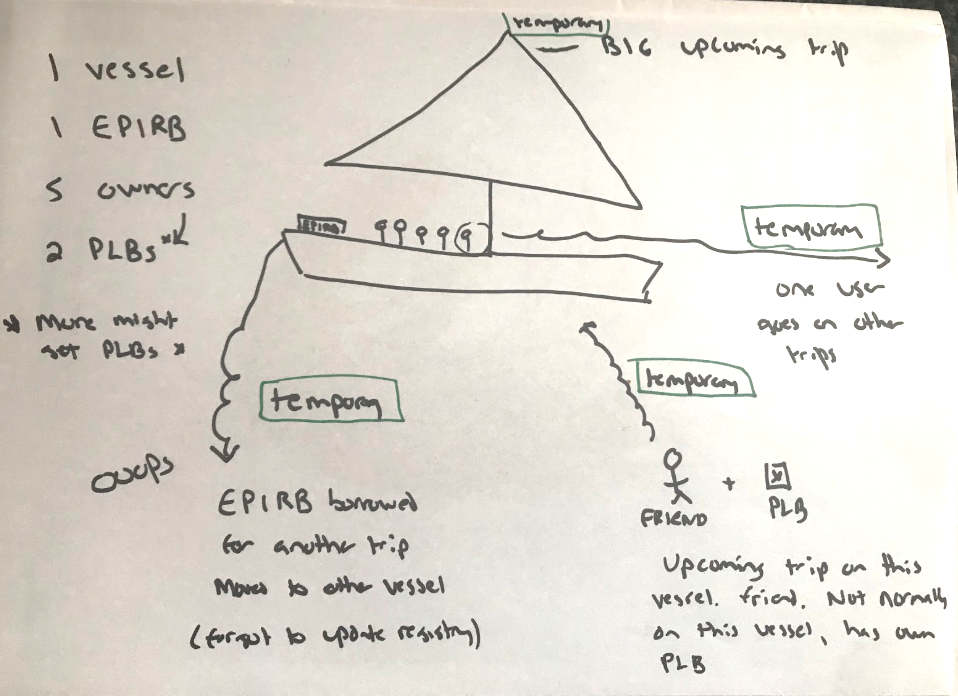 1 vessel
1 EPIRB
5 owners
2 PLBs*
* More might
get PLBs *
temporary
BIG upcoming trip
EPIRB
temporary
one user
goes on other
trips
temporary
temporary
ooops
EPIRB borrowed
for another trip
Moves to other vessel
(forgot to update registry)
FRIEND
+
PLB
Upcoming trip on this
vessel. friend. Not normally
on this vessel, has own
PLB